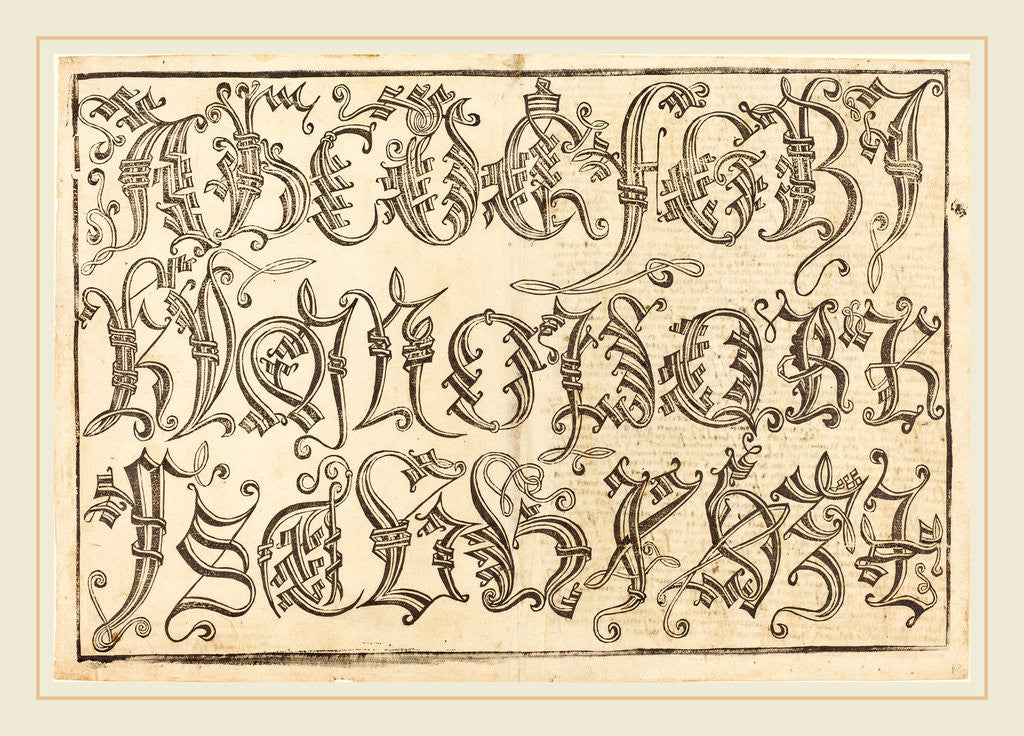 A B C D E F G H I
K L M N O P Q R R
S S T W X Y Z Z